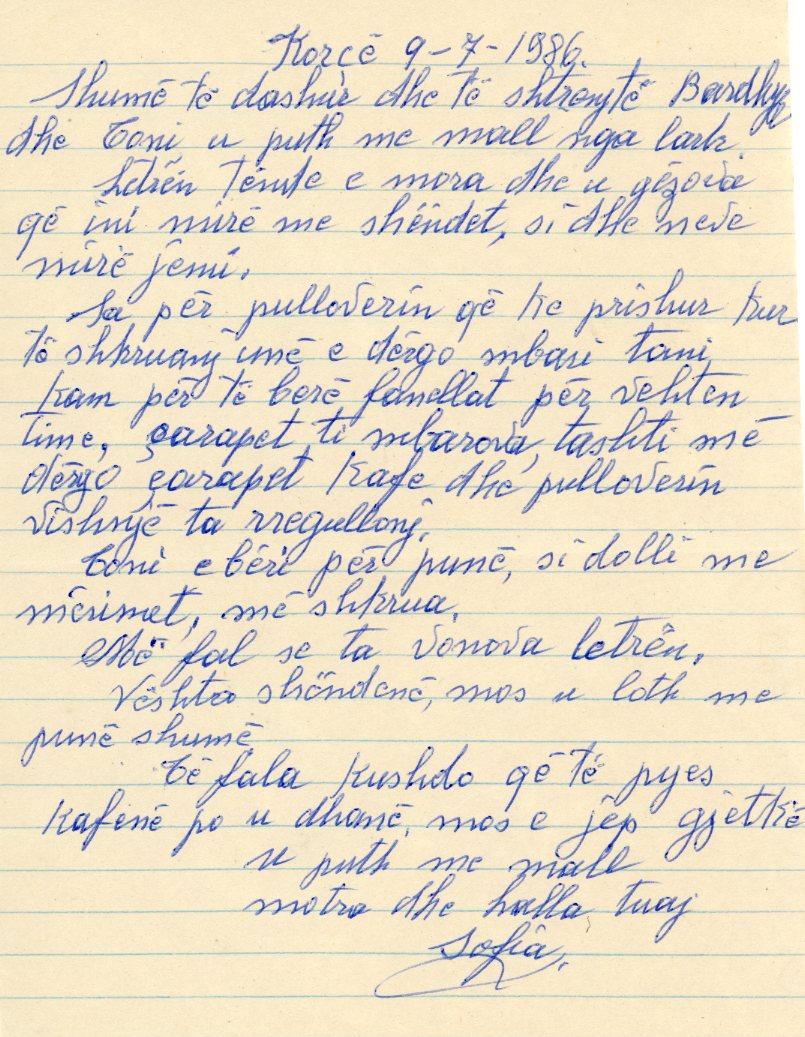 Korcë 9-7-1986.
Shumë të dashur dhe të shtrenjtë Bardhyl
dhe Toni u puth me mall nga lark
Letrën tënde e mora dhe u gëzova
që ini mirë me shëndet, si dhe neve
mirë jemi.
Sa për pulloverin që ke prishur kur
të shkruanj unë e dërgo mbasi tani
kam për të berë fanellat për vehten
time, çarapet ti mbarova, tashti më
dërgo çarapet kafe dhe pulloverin
vishnjë ta rregullonj.
Toni e bëri për punë, si dolli me
mërimet, më shkrua.
Më fal se ta vonova letrën.
Vështo shëndenë, mos u loth me
punë shumë.
Të fala kushdo që të pyes
Kafenë po u dhanë, mos e jëp gjetkë
u puth me mall
motra dhe halla tuaj
Sofia.